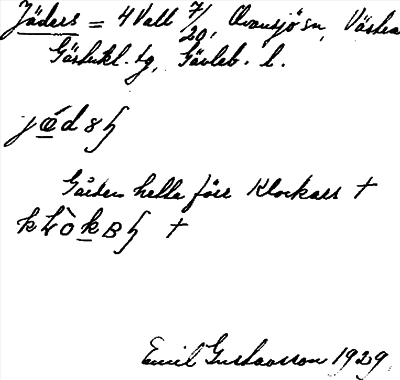 Jäders = 4 Vall 7/20, Ovansjö sn, Västra
Gästrikl. tg, Gävleb. l.
jǿd
Gården hette förr Klockars †
†
Emil Gustavsson 1929